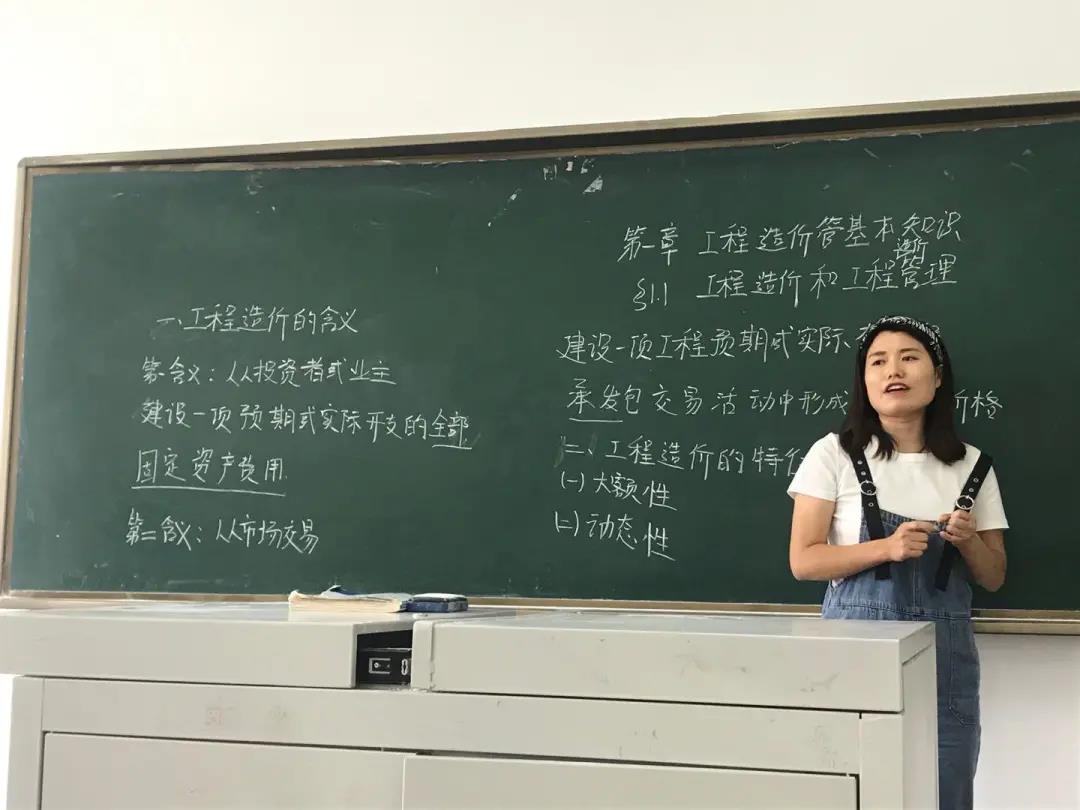 第一章 工程造价管基本知识
造价
§1.1 工程造价和工程管理
一、工程造价的含义
第一含义：从投资者或业主
建设一项预期或实际开支的全部
固定资产费用
第二含义：从市场交易
建设一项工程预期或实际
承发包交易活动中形成 价格
二、工程造价的特
(一) 大额性
(二) 动态性